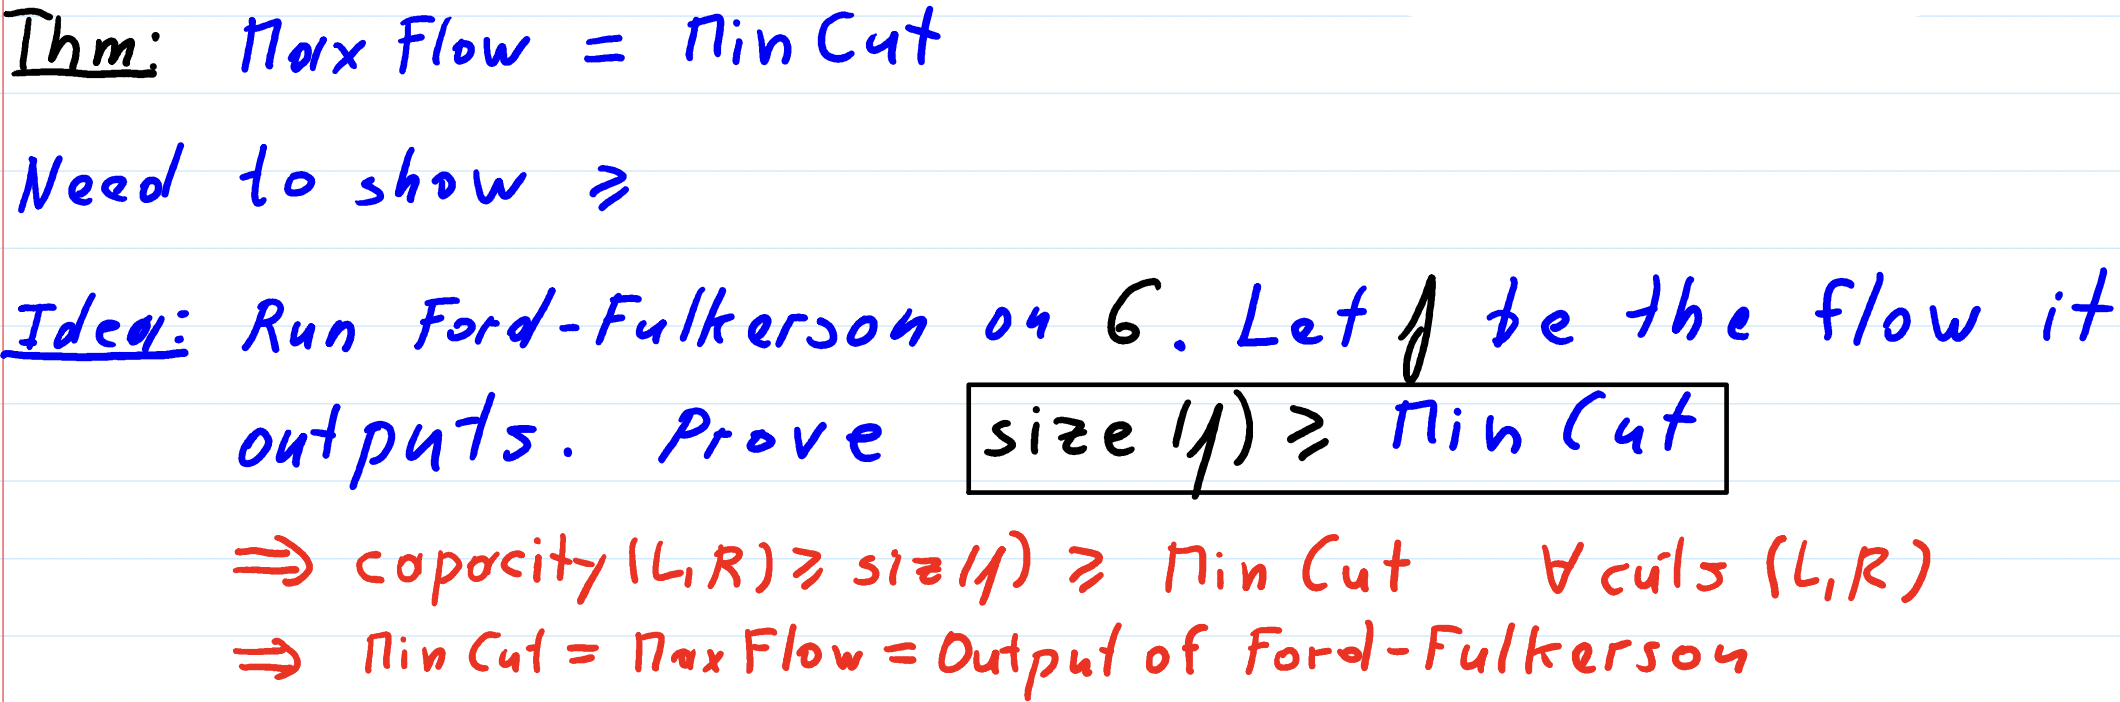 Thm: Max Flow = Min Cut
Need to show ≥
Idea: Run Ford-Fulkerson on G. Let f be the flow it
outputs. Prove size(f) ≥ Min Cut
⇒ capacity(L,R) ≥ siz(f) ≥ Min Cut ∀ cuts (L,R)
⇒ Min Cut = Max Flow = Output of Ford-Fulkerson